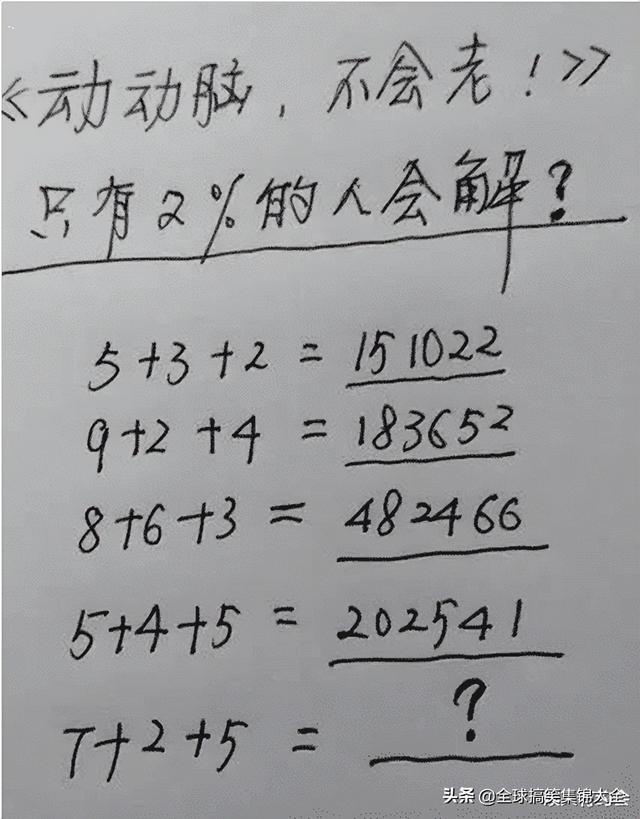 《动动脑，不会老！》
只有2%的人会解？
5+3+2=151022
9+2+4=183652
8+6+3=482466
5+4+5=202541
7+2+5=?
头条 @全球搞笑集锦大全